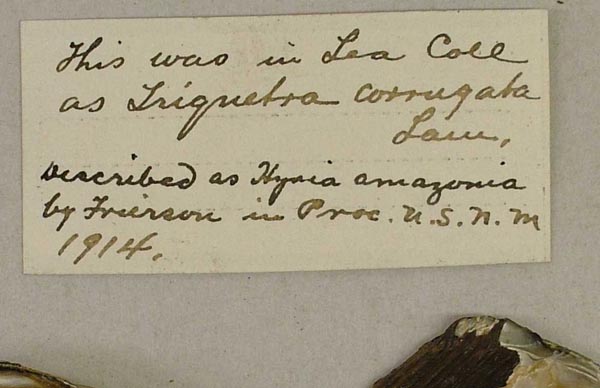 This was in Lea Coll
as Triquetra corrugata
Lam.
Described as Hyria amazonia
by Frierson in Proc. U.S.N.M
1914.